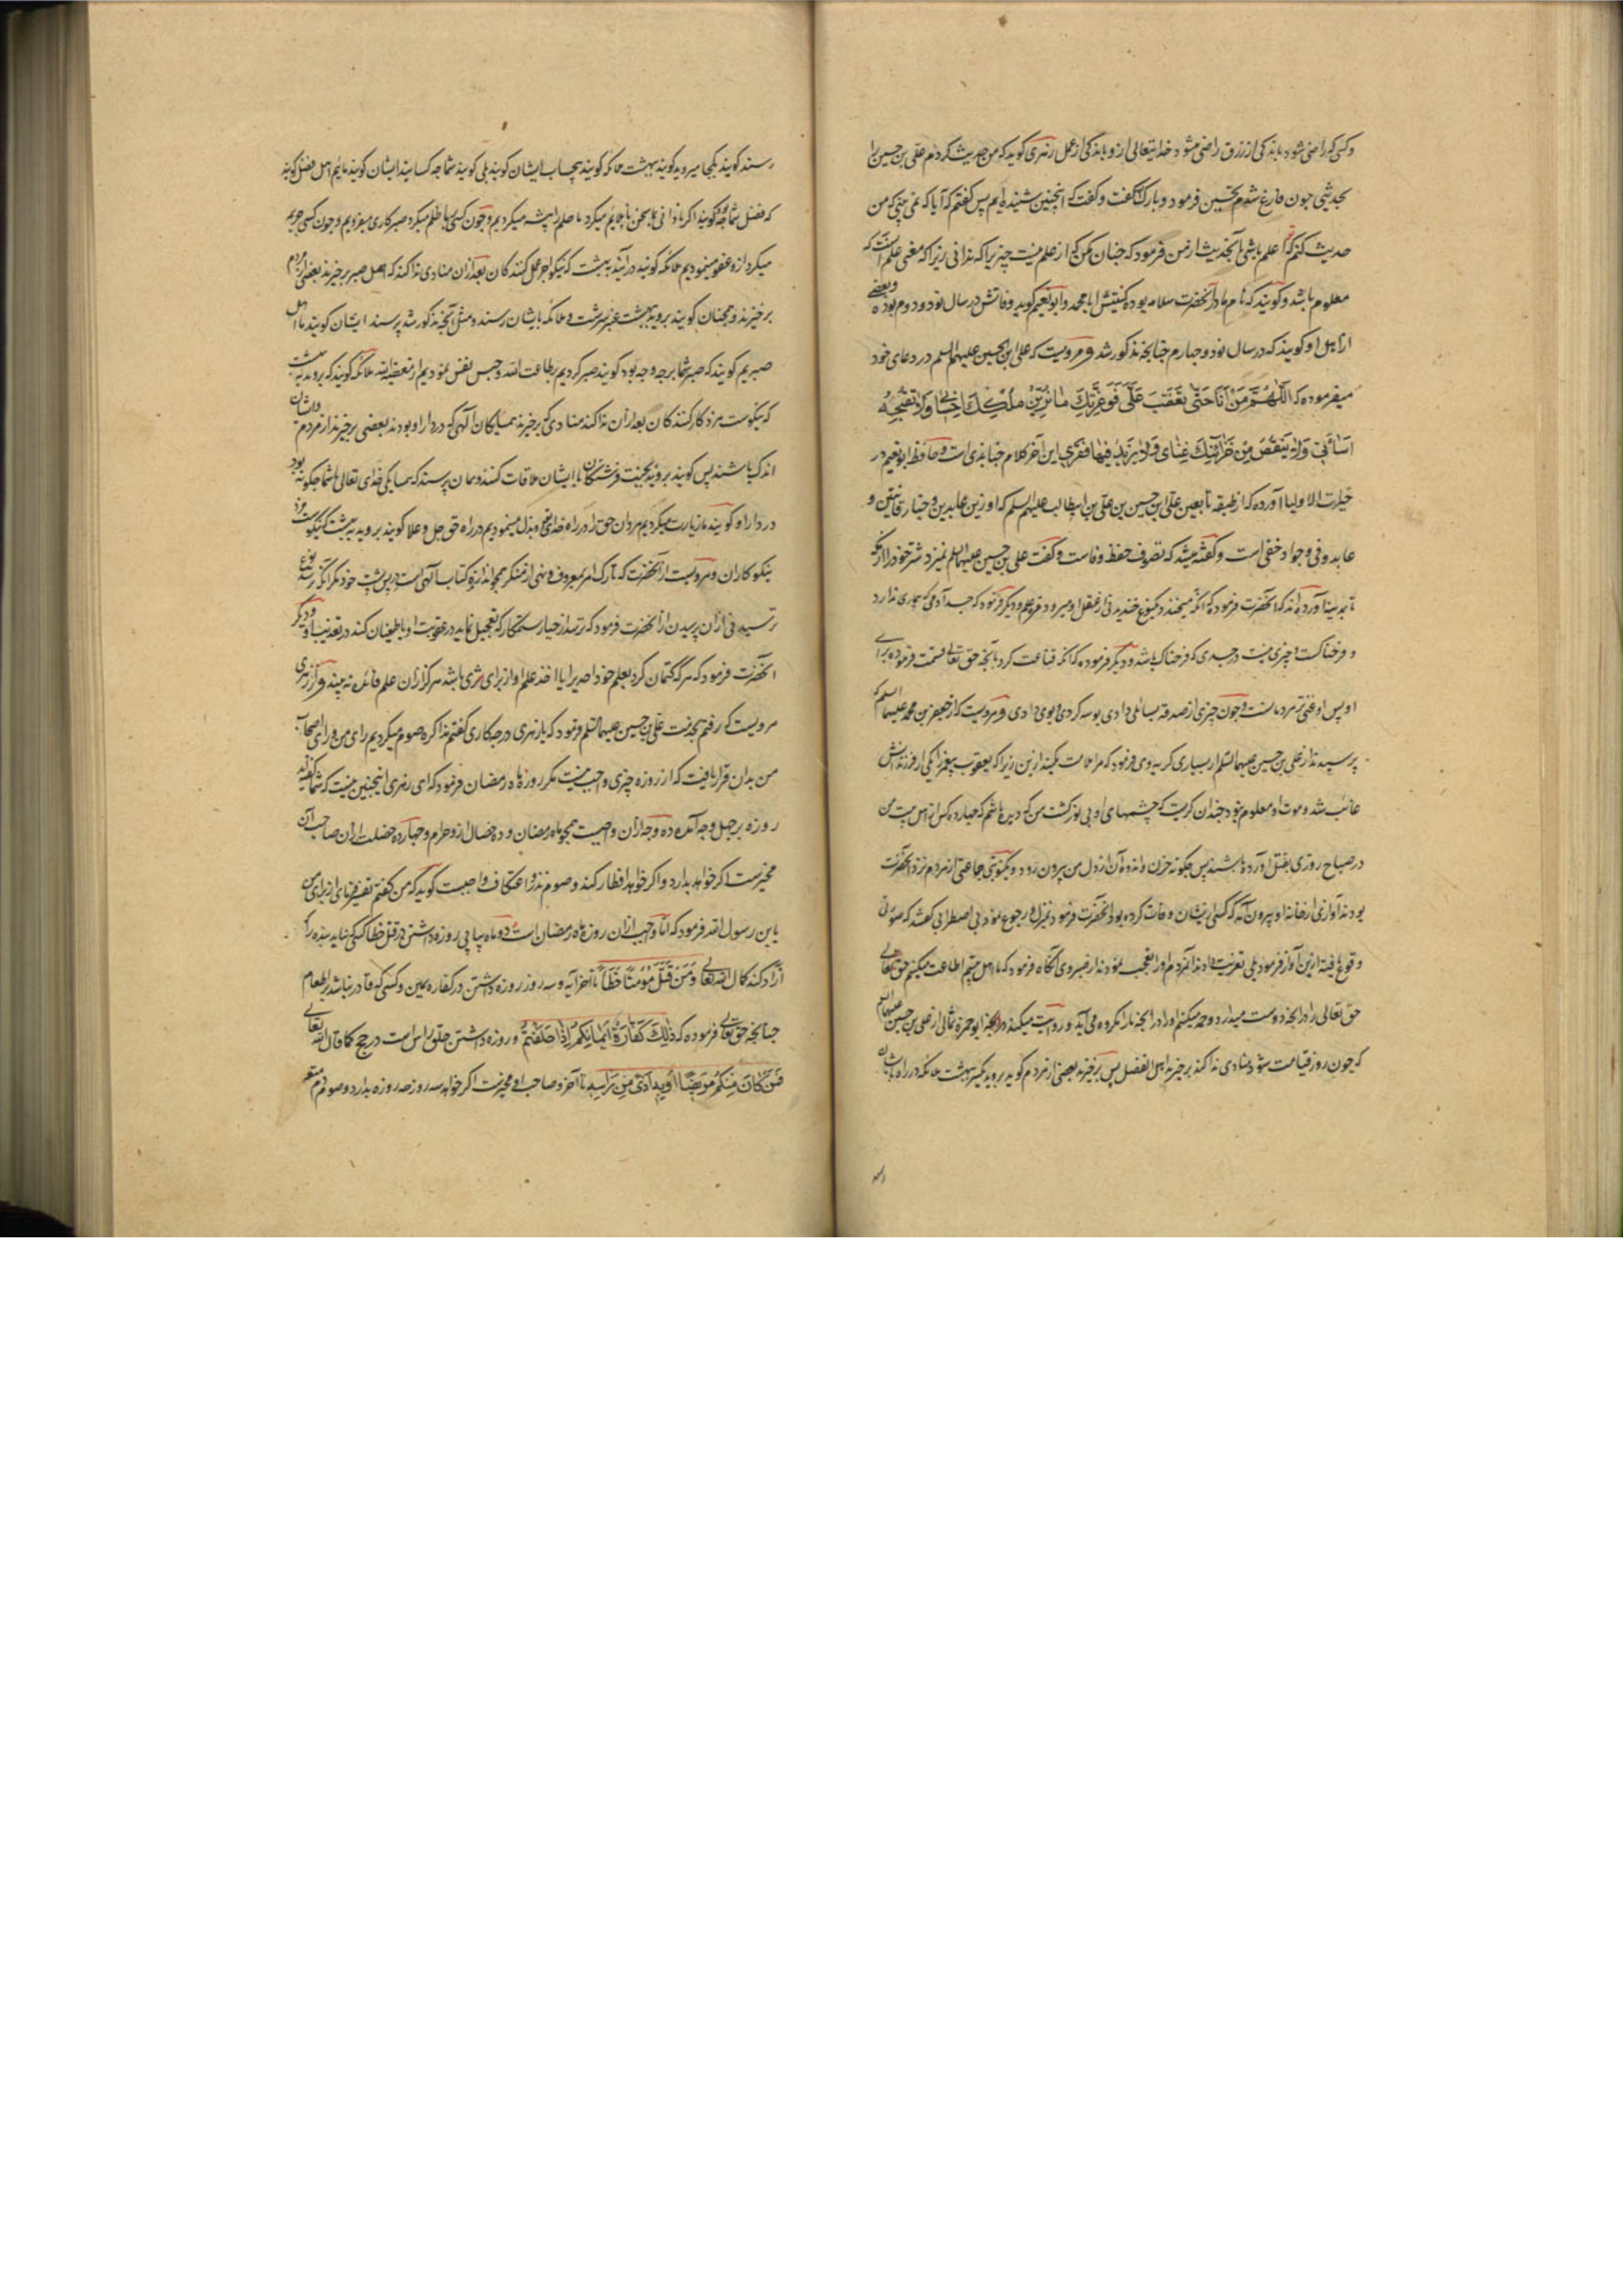 و کسی که راضی شود باندکی از رزق راضی میشود خدایتعالی ازو باندکی از عمل زهری کوید که من حدیث کردم علی بن حسین را
بحدیثی چون فارغ شدم تحسین فرمود و بارک الله گفت و گفت که اینچنین شنیده ایم پس گفتم که آیا که نمی بینی که من
حدیث کنم که تو اعلم باشی بآنحدیث از من فرمود که چنان مکن که از علم نیست چیزیرا که ندانی زیرا که معنی علم آنست که
معلوم باشد و کویند که نام مادر آنحضرت سلامه بوده کنیتش ابا محمد و ابو نعیم کوید وفاتش در سال نود و دوم بوده و بعضی
از اهل او کویند که در سال نود و چهارم چنانچه مذکور شد و مرویست که علی ابن الحسین علیهما السلم در دعای خود
میفرموده که اللهم من انا حتی تغضب علی فوعزتک ما یزین ملکک احسانی ولا تقبحه
اسائتی ولا ینقص من خزائنک غنای ولا یزید فیها فقری این آخر کلام جنابذی است و حافظ ابو نعیم در
حلیة الاولیا آورده که از طبقه تابعین علی ابن حسین بن علی بن ابیطالب علیهم السلم که او زین عابدین و منار قانتین و
عابد وفی و جواد حفی است و گفته میشد که تصوف حفظ وفاست و گفت علی بن حسین علیهما السلم نمیزد شتر خود را از مکه
تا بمدینه آورده اند که آنحضرت فرمود که آنکه میخندد یکنوع خندیدنی از عقل او میرود علم و دیگر فرمود که جسد آدمی که بیماری ندارد
و فرحناکست و چیزی نیست در جسدی که فرحناک باشد و دیگر فرموده که آنکه قناعت کرد بآنچه حق تعالی قسمت فرموده برای
او پس او غنی تر مردمانست و چون چیزی از صدقه بسائلی دادی بوسه کردی و بوی دادی و مرویست که از جعفر بن محمد علیهما السلم که
پرسیدند از علی بن حسین علیهما السلم از بسیاری کریه وی فرمود که مرا ملامت مکنید ازین زیرا که یعقوب پیغمبر یکی از فرزندانش
غائب شد و موت او معلوم نبود چندان کریست که چشمهای او بی نور کشت من که دیده باشم که چهارده کس از اهل بیت من
در صباح روزی بقتل آورده باشند پس چکونه حزن و اندوه آن از دل من بیرون رود و یکنوبتی جماعتی از مردم نزد آنحضرت
بودند آوازی از خانه او بیرون آمد که کسی ایشان وفات کرده بود آنحضرت فرمود بمنزل و رجوع نمود بی اضطرابی گفتند که صوتی
وقوع یافته ازین آواز فرمود بلی تعزیت دادند آنمردم او را و تعجب نمودند از صبر وی آنگاه فرمود که ما اهل بیتیم اطاعت میکنیم حق تعالی
حق تعالی را در آنچه دوست میدارد و حمد میکنیم او را در آنچه ما را مکروه می آید و روایت میکند ابو حمزه ثمالی از علی بن حسین علیهما السلم
که چون روز قیامت شود منادی ندا کند برخیزند اهل الفضل پس برخیزند بعضی از مردم کوید بروید به بهشت ملائکه در راه بایشان
رسند کویند بکجا میروید کویند بهشت ملائکه کویند بیحساب ایشان کویند بلی کویند شما چه کسانید ایشان کویند مائیم اهل فضل کویند
که فضل شما چه بود کویند اگر نادانی میکرد ما حلم را پیشه میکردیم و چون کسی با ما ظلم میکرد صبر کاری میفرمودیم و چون کسی جریمه
میکرد ازو عفو مینمودیم ملائکه کویند درآئید به بهشت که نیکو اجر عمل کنندکان بعد از آن منادی ندا کند که اهل صبر برخیزند بعضی از مردم
برخیزند و همچنان کویند بروید بهشت و ملائکه بایشان رسند و مثل آنچه مذکور شد پرسند ایشان کویند ما اهل
صبریم کویند که صبر شما بر چه وجه بود کویند صبر کردیم بر طاعت الله و حبس نفس نمودیم از معصیة الله ملائکه کویند که بروید به بهشت
که نیکوست مزد کارکنندکان بعد از آن ندا کند منادی که برخیزند همسایکان آلهی که در دار او بودند بعضی برخیزند از مردم و ایشان
اندک باشند پس کویند بروید بجنت فرشتکان با ایشان ملاقات کنند و همان پرسند که همسایکی خدای تعالی با شما چکونه بود
در دار او کویند ما زیارت میکردیم مردان حق را در راه خدای و بذل مینمودیم در راه حق جل و علا کویند بروید به بهشت که نیکوست مزد
نیکوکاران و مرویست از آنحضرت که تارک امر بمعروف و نهی از منکر همچو اندازنده کتاب آلهی است در پس پشت خود مکر آنکه ترسد نوع
ترسیدنی از آن پرسیدن از آنحضرت فرمود که ترسد از جبار ستمکار که تعجیل نماید در عقوبت او یا طغیان کند در تعذیب او و دیگر
آنحضرت فرمود که هر که کتمان کرد بعلم خود احدیرا یا اخذ علم او از برای مزدی باشد هرکز از آن علم فائده نه بیند و از زهری
مرویست که رفتم بخدمت علی بن حسین علیهما السلم فرمود که یا زهری در چه کاری گفتم مذاکره صوم میکردیم رای من و رای اصحاب
من بدان قرار یافت که از روزه چیزی واجب نیست مکر روزه ماه رمضان فرمود که ای زهری اینچنین نیست که شما گفتید
روزه بر چهل وجه آمده ده وجه از آن واجبست همچو ماه رمضان و ده خصال ازو حرام و چهارده خصلت از آن صاحب آن
مخیرست اگر خواهد بدارد و اگر خواهد افطار کند و صوم نذر و اعتکاف واجبست کوید که من گفتم تفسیر فرمای از برای من
یا بن رسول الله فرمود که اما واجب از آن روزه ماه رمضان است و دو ماه پیاپی روزه داشتن در قتل خطا کسی که نیابد بنده را که
آزاد کند کما قال الله تعالی و من قتل مؤمنا خطأ تا آخر آیه و سه روز روزه داشتن در کفاره یمین و کسی که قادر نباشد بر طعام
چنانچه حق تعالی فرموده که ذلک کفارة ایمانکم اذا حلفتم و روزه داشتن حلق راس است در حج کما قال الله تعالی
فمن کان منکم مریضا او به اذی من راسه تا آخر و صاحب او مخیرست اگر خواهد سه روز روزه بدارد و صوم دم متعه